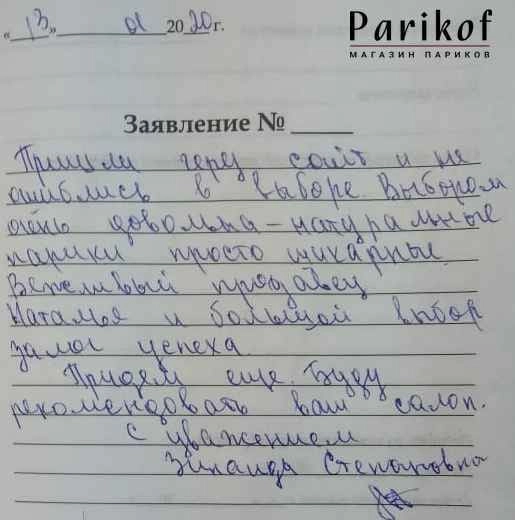 Parikof
МАГАЗИН ПАРИКОВ
«13» 01 2020 г.
Заявление №
Пришли через сайт и не
ошиблись в выборе. Выбором
очень довольна - натуральные
парики просто шикарные.
Вежливый продавец
Наталья и большой выбор
залог успеха.
Придем еще. Буду
рекомендовать ваш салон.
С уважением
Зинаида Степановна